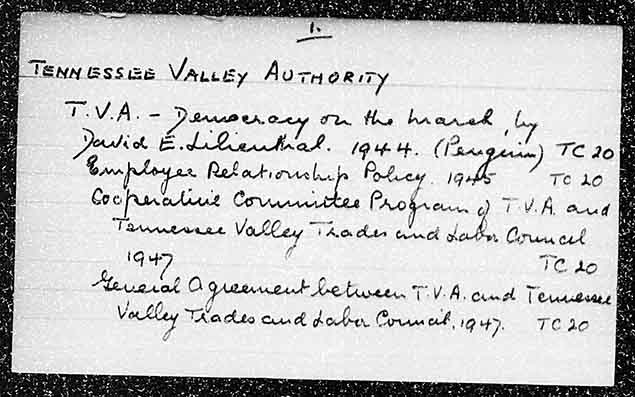 1.
TENNESSEE VALLEY AUTHORITY
T.V.A. - Democracy on the march, by
David E. Lilienthal. 1944. (Penguin) TC 20
Employee Relationship Policy. 1945 TC 20
Cooperative Committee Program of T.V.A. and
Tennessee Valley Trades and Labor Council
1947 TC 20
General Agreement between T.V.A. and Tennessee
Valley Trades and Labor Council, 1947. TC 20